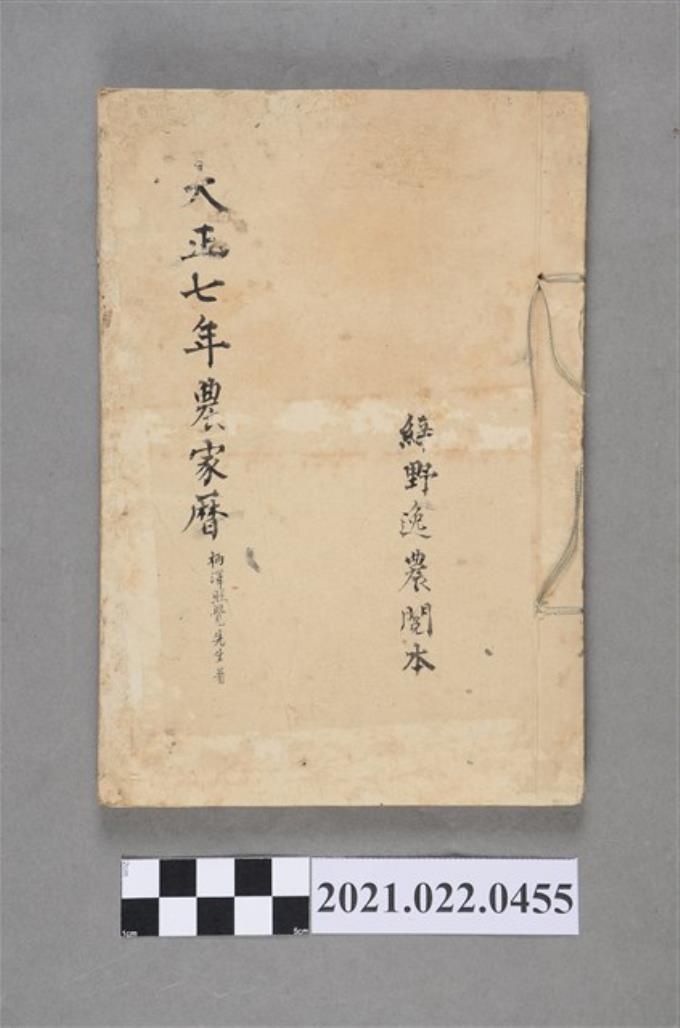 綠野逸農閱本
大正七年農家曆
柄澤照覺先生著
2021.022.0455
1cm
5cm